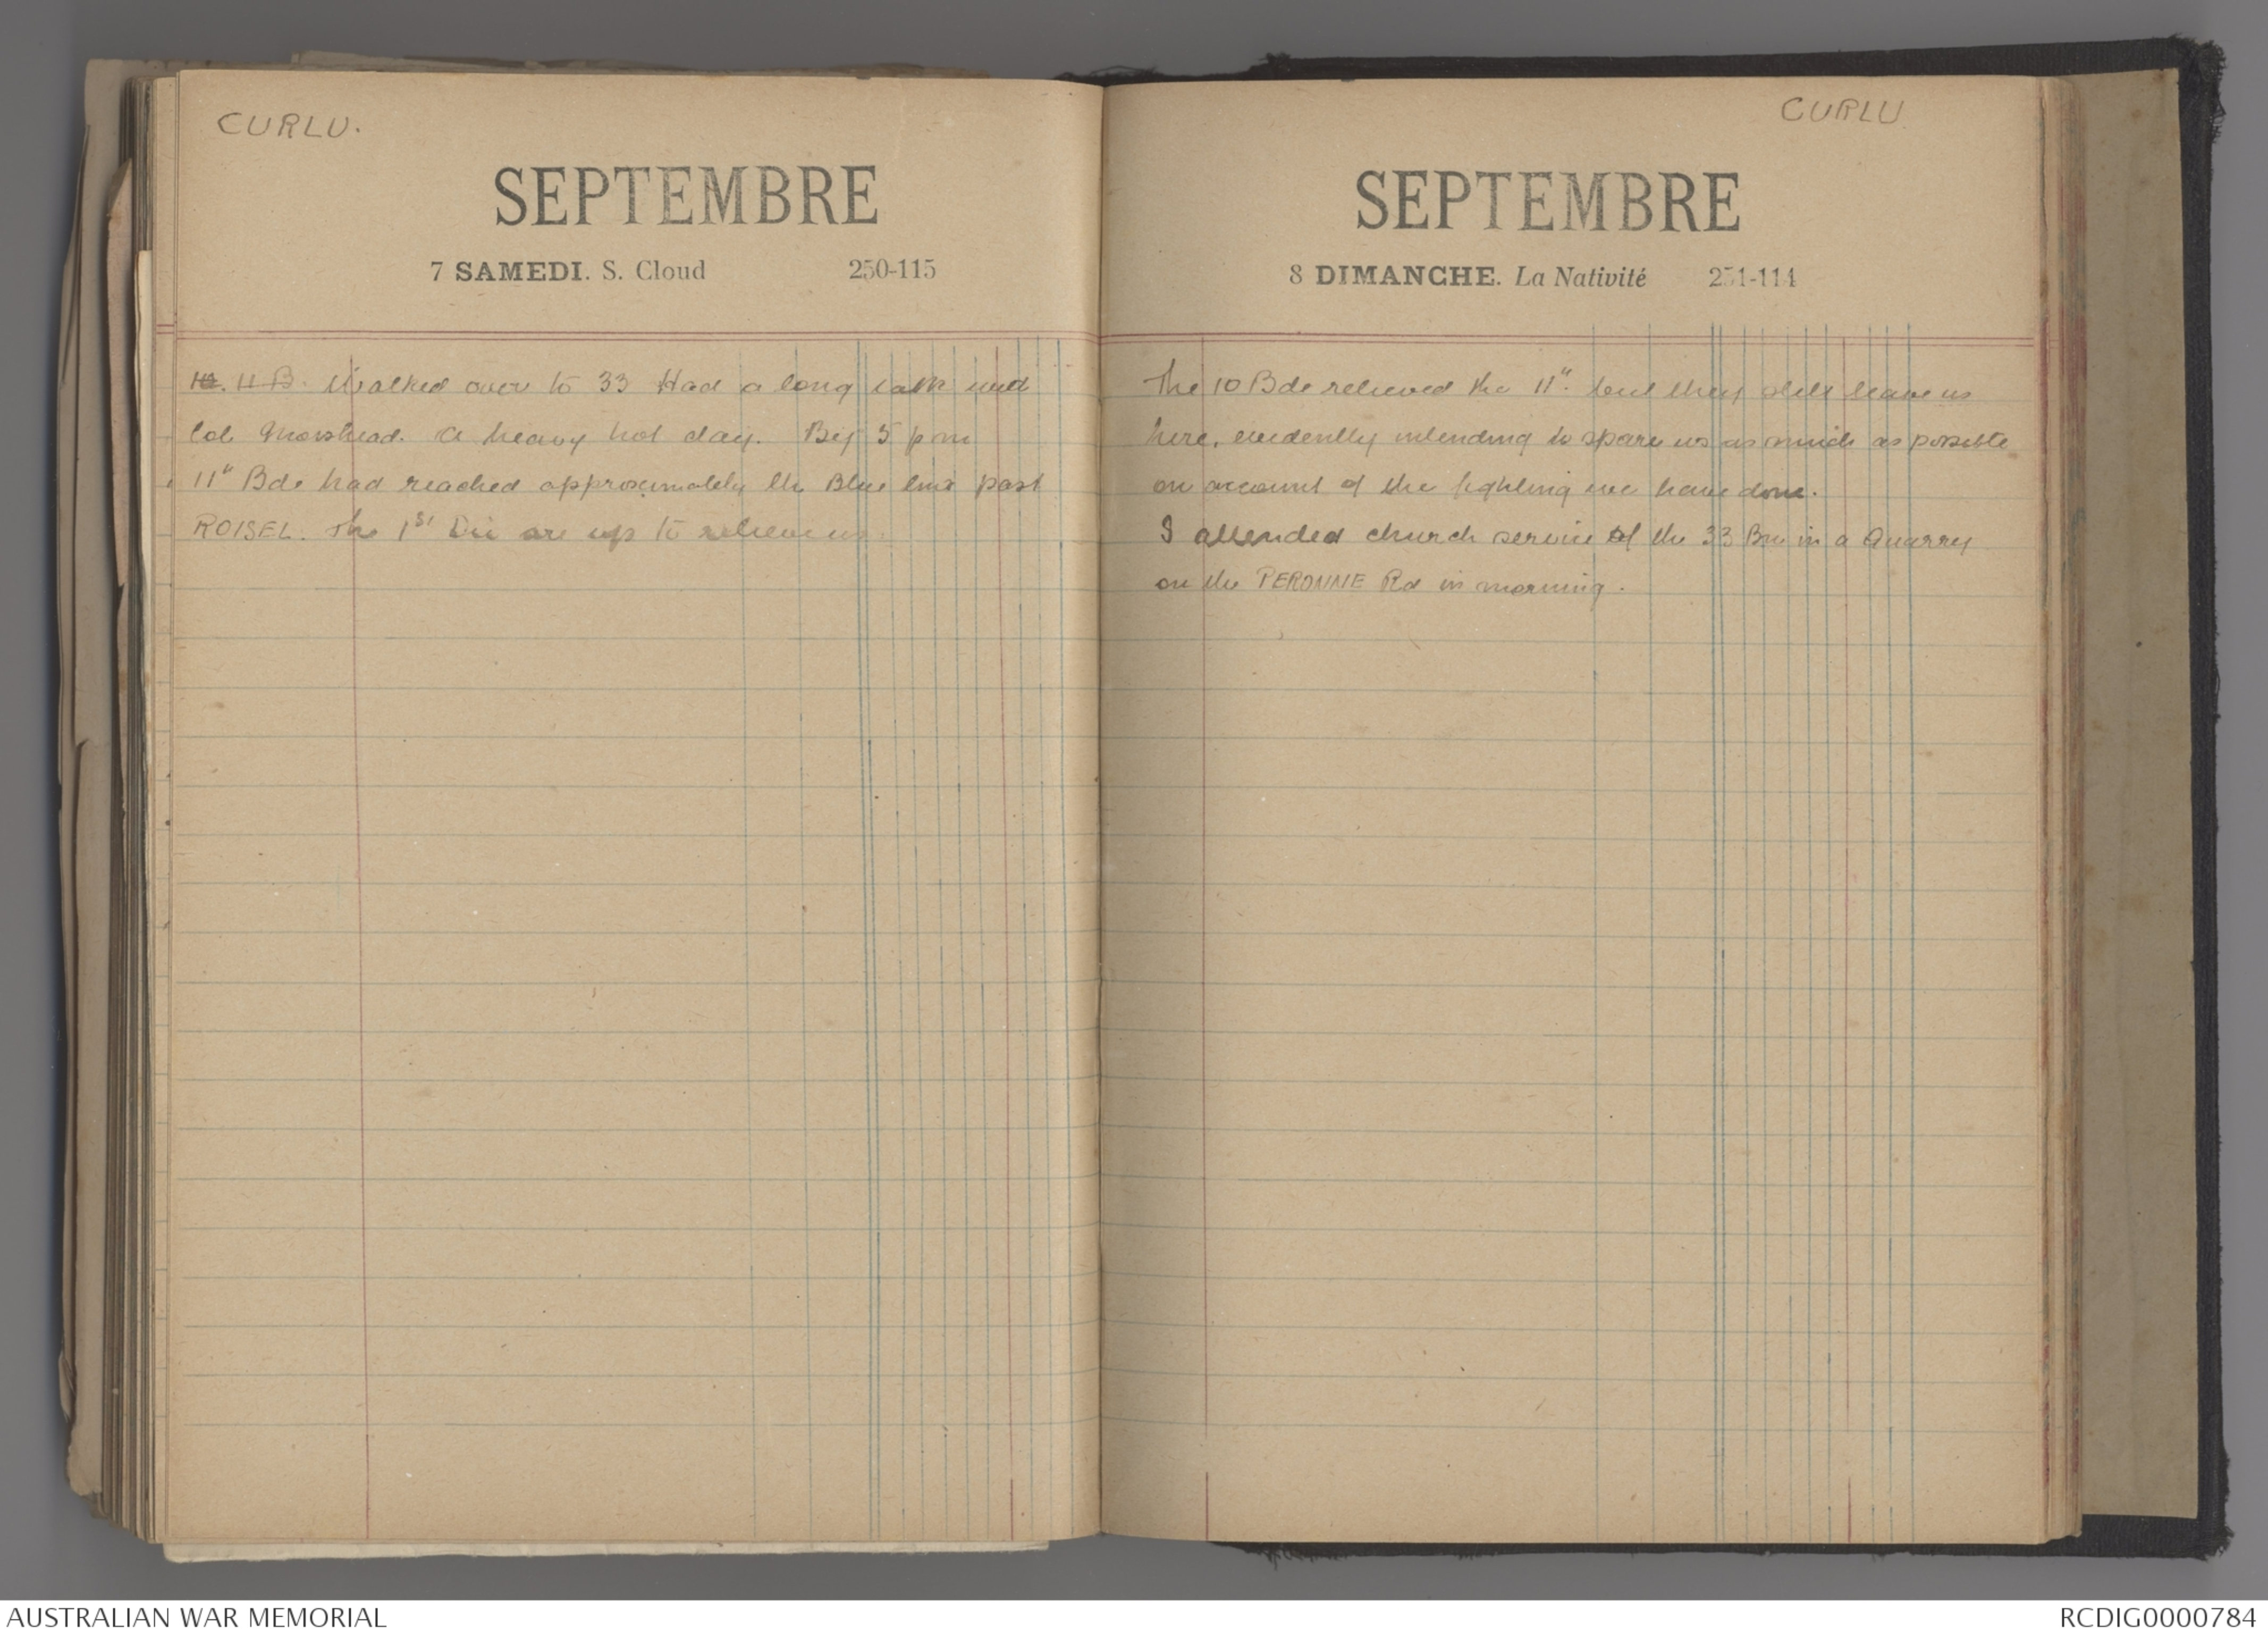 CURLU.
SEPTEMBRE
7 SAMEDI. S. Cloud 250-115
11 B. Walked over to 33 Had a long talk with
Col Morshead. A heavy hot day. By 5 pm
11" Bde had reached approximately the Blue line past
ROISEL. The 1st Div are up to relieve us.
CURLU
SEPTEMBRE
8 DIMANCHE. La Nativité 251-114
The 10 Bde relieved the 11". but they still leave us
here, evidently intending to spare us as much as possible
on account of the fighting we have done.
I attended church service of the 33 Bn in a Quarry
on the PERONNE Rd in morning.
AUSTRALIAN WAR MEMORIAL
RCDIG0000784